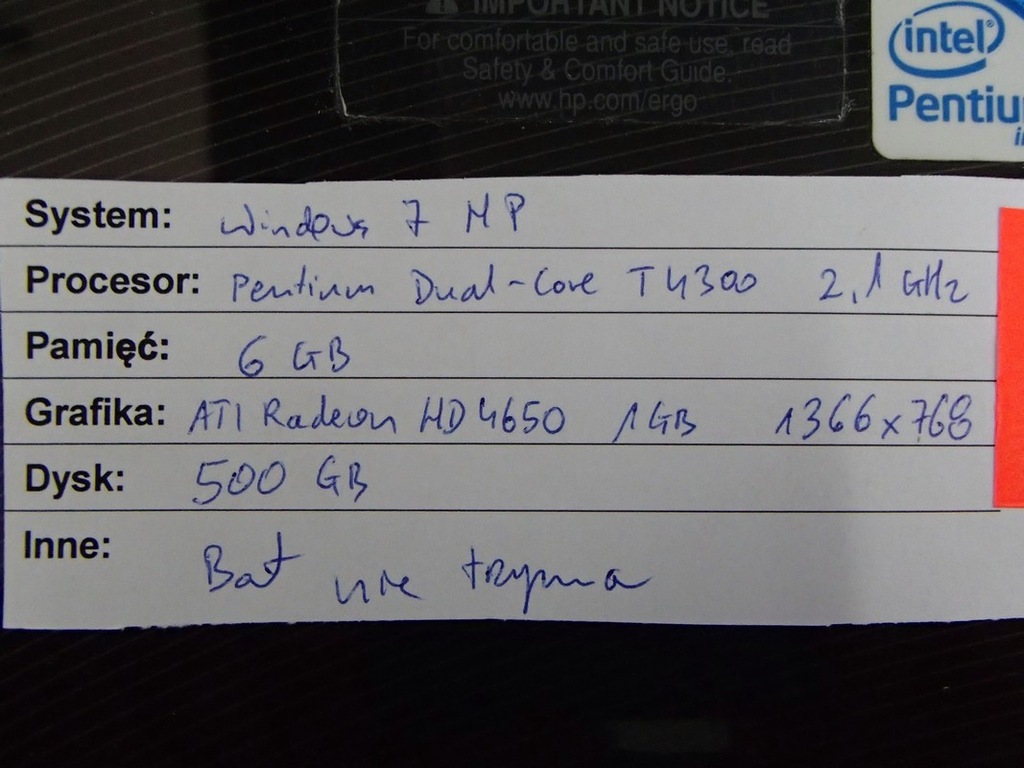 IMPORTANT NOTICE
For comfortable and safe use, read
Safety & Comfort Guide.
www.hp.com/ergo
intel®
Pentiu
System: Windows 7 HP
Procesor: Pentium Dual-Core T4300 2,1 GHz
Pamięć: 6 GB
Grafika: ATI Radeon HD 4650 1GB 1366x768
Dysk: 500 GB
Inne: Bat nie trzyma